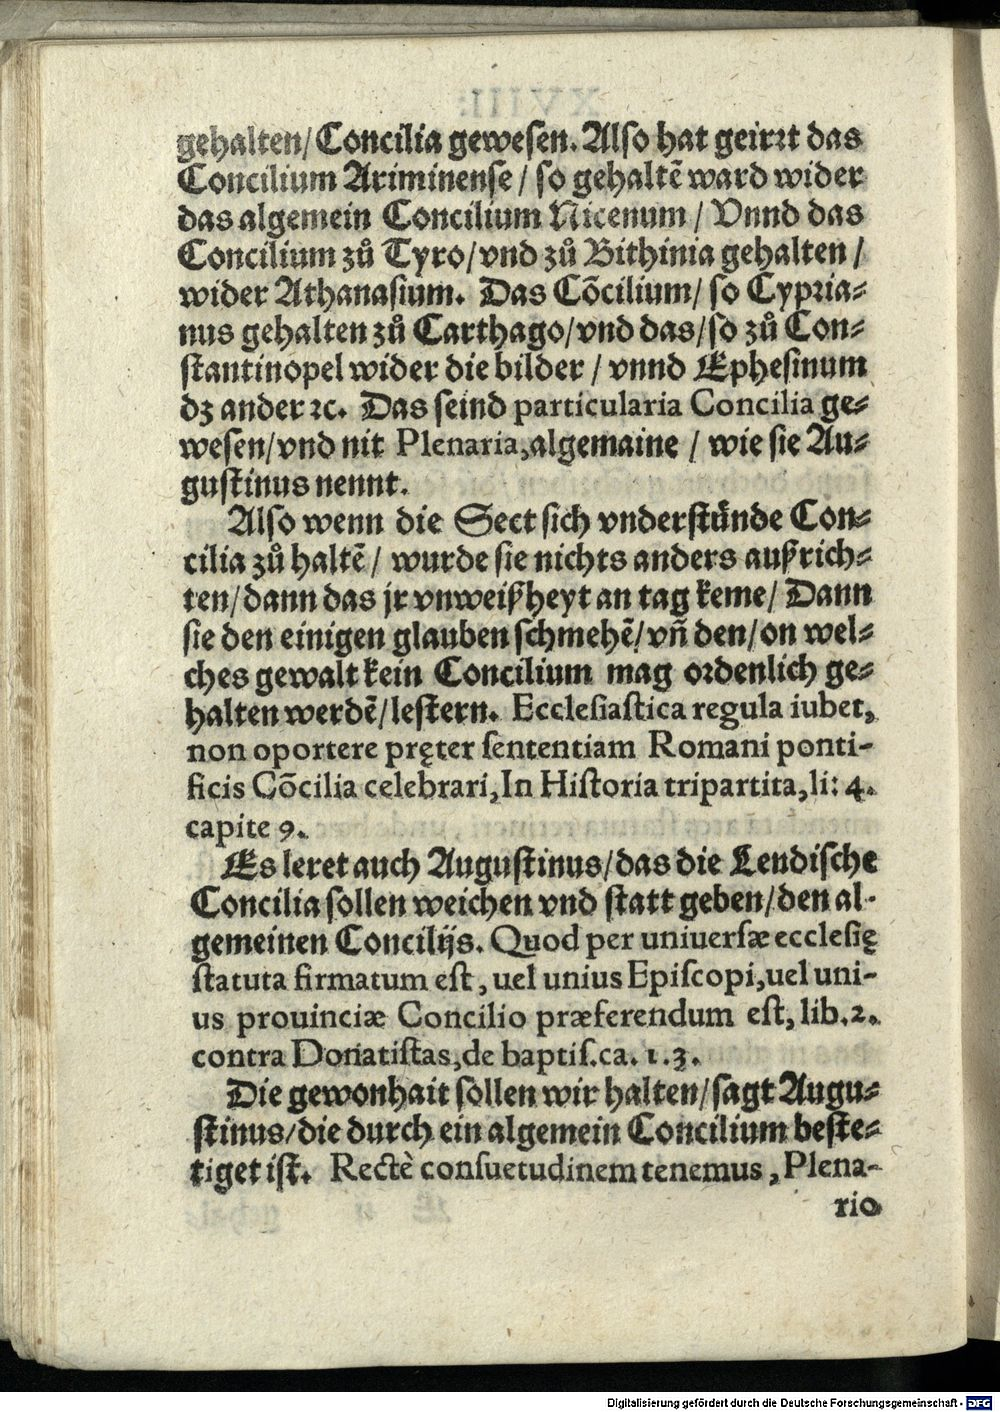 gehalten/ Concilia gewesen. Also hat geirrt das
Concilium Ariminense / so gehaltẽ ward wider
das algemein Concilium Nicenum / Vnnd das
Concilium zů Tyro/vnd zů Bithinia gehalten /
wider Athanasium. Das Cõcilium/ so Cypria-
nus gehalten zů Carthago/vnd das/so zů Con-
stantinopel wider die bilder / vnnd Ephesinum
dz ander ꝛc. Das seind particularia Concilia ge-
wesen/vnd nit Plenaria,algemaine / wie sie Au-
gustinus nennt.
Also wenn die Sect sich vnderstünde Con-
cilia zů haltẽ / wurde sie nichts anders außrich-
ten/dann das jr vnweißheyt an tag keme/ Dann
sie den einigen glauben schmehẽ/vñ den/on wel-
ches gewalt kein Concilium mag ordenlich ge-
halten werdẽ/lestern. Ecclesiastica regula iubet,
non oportere pręter sententiam Romani ponti-
ficis Cõcilia celebrari,In Historia tripartita,li: 4.
capite 9.
Es leret auch Augustinus/das die Lendische
Concilia sollen weichen vnd statt geben/den al-
gemeinen Concilijs. Quod per uniuersæ ecclesię
statuta firmatum est, uel unius Episcopi,uel uni-
us prouinciæ Concilio præferendum est, lib.2.
contra Donatistas,de baptis.ca. 1.3.
Die gewonhait sollen wir halten/sagt Augu-
stinus/die durch ein algemein Concilium beste-
tiget ist. Rectè consuetudinem tenemus, Plena-
rio
Digitalisierung gefördert durch die Deutsche Forschungsgemeinschaft - DFG